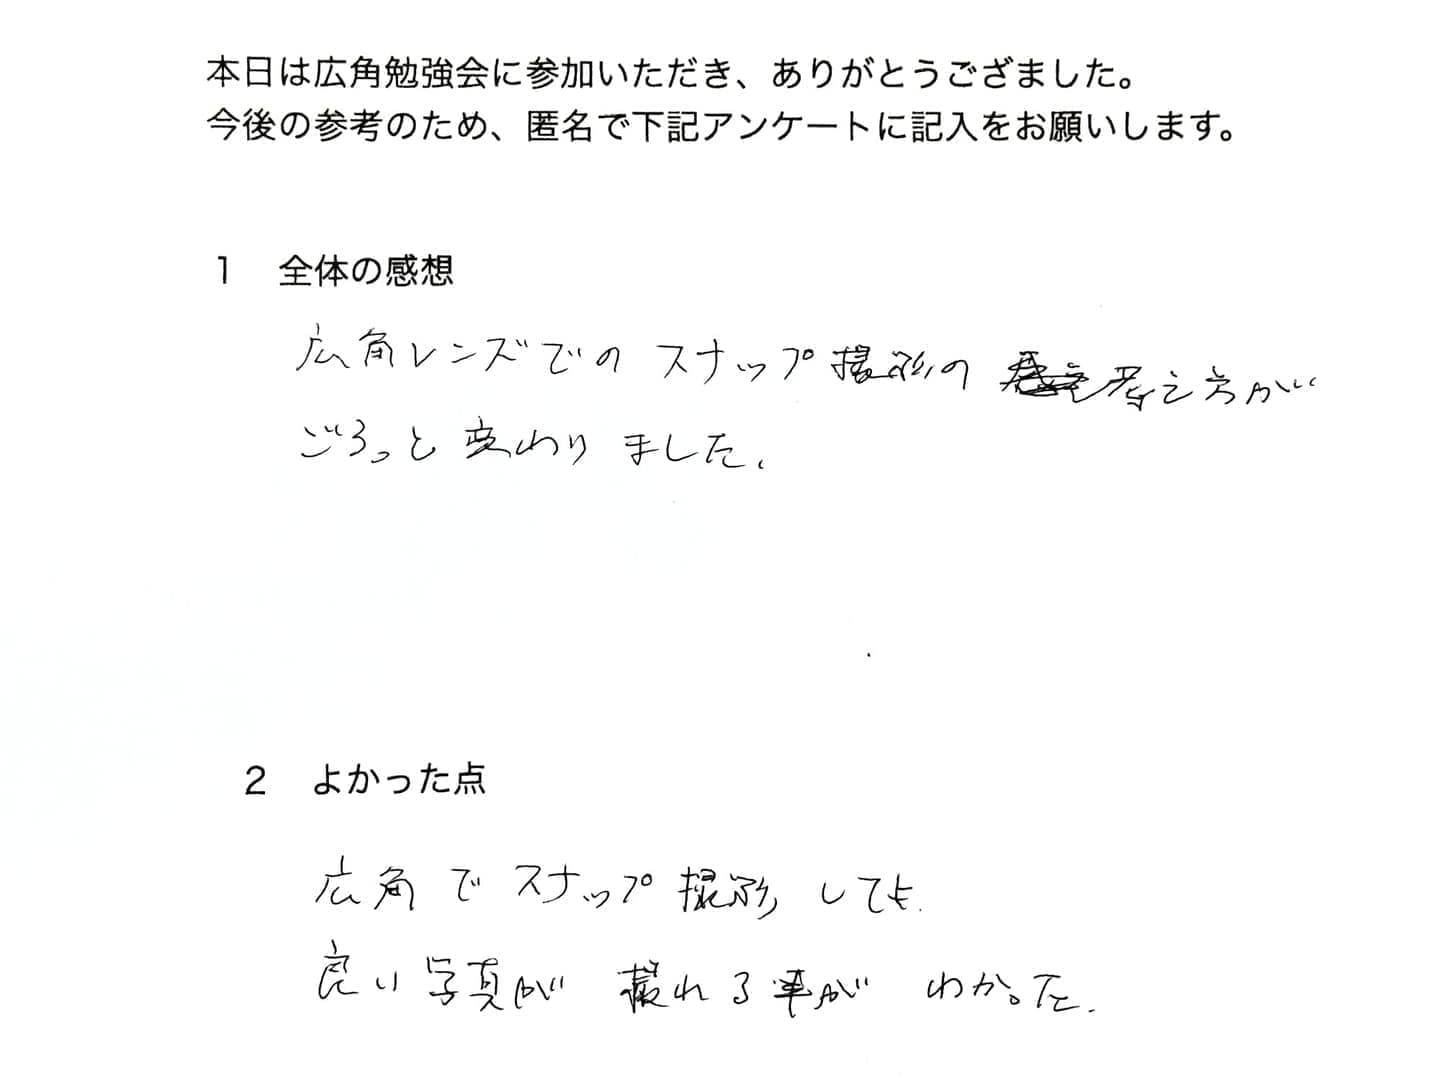 本日は広角勉強会に参加いただき、ありがとうござました。
今後の参考のため、匿名で下記アンケートに記入をお願いします。
1 全体の感想
広角レンズでのスナップ撮影の考え方が
ごろっと変わりました。
2 よかった点
広角でスナップ撮影しても
良い写真が撮れる事がわかった.